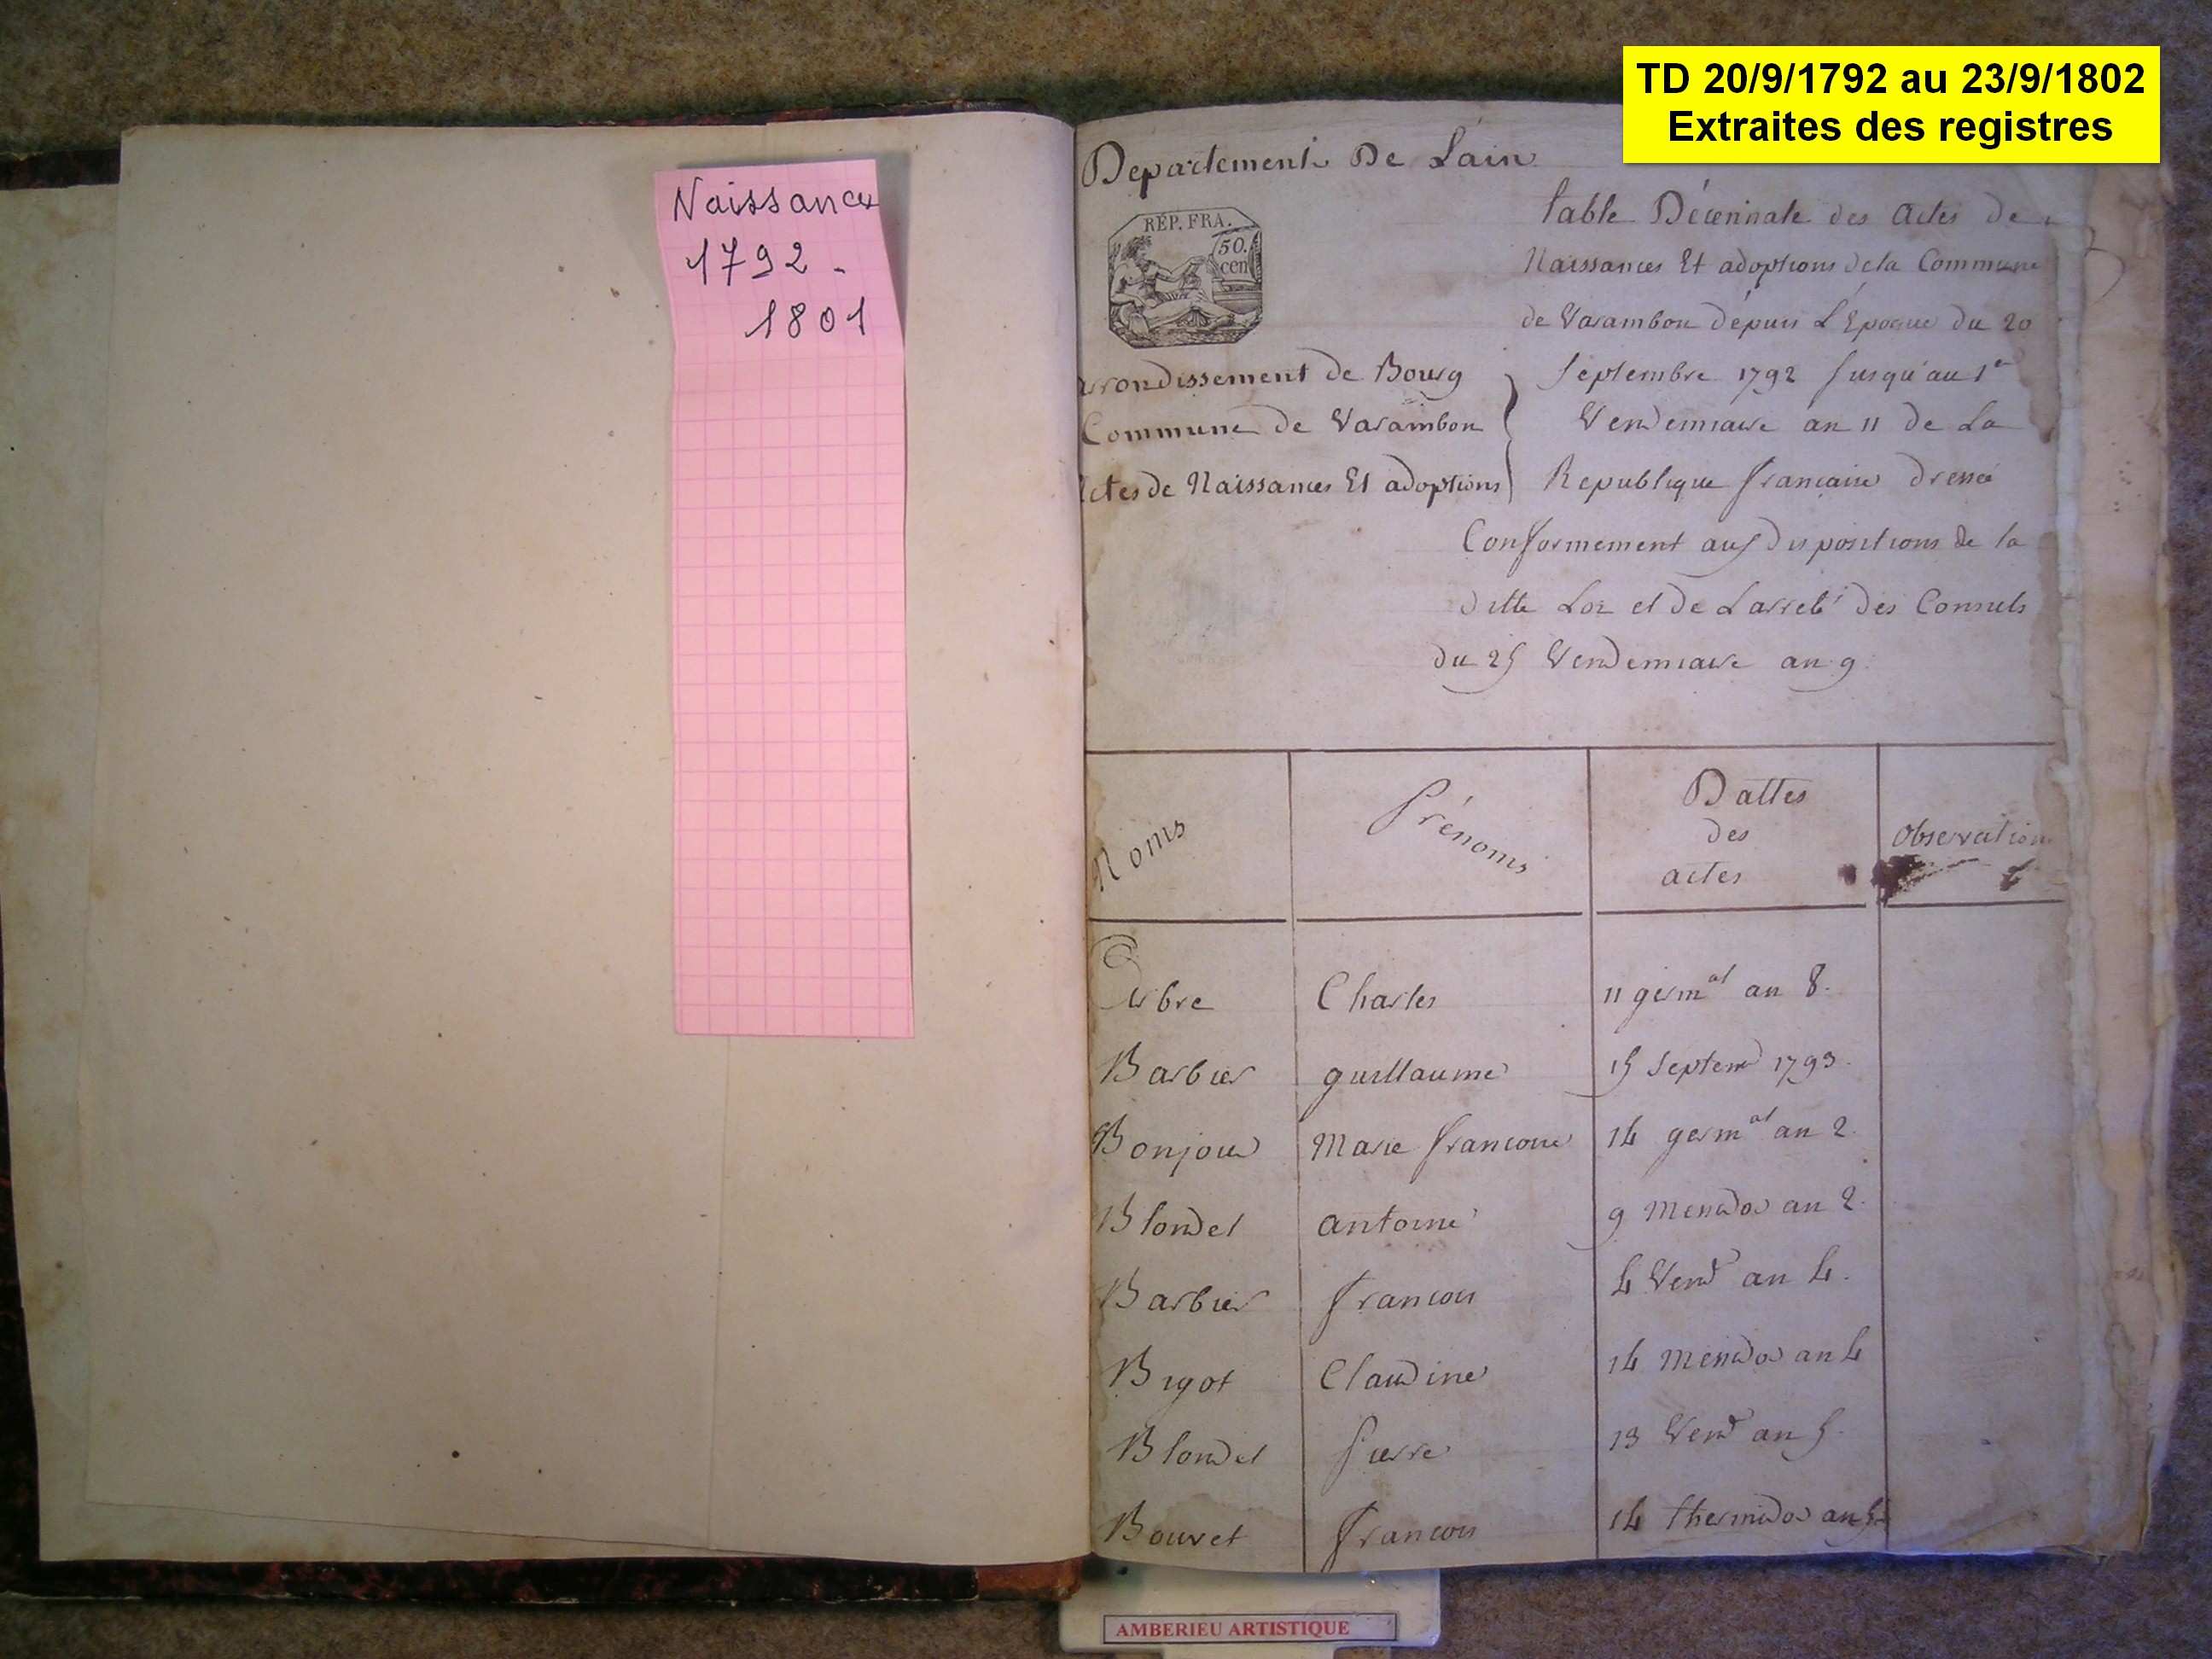 TD 20/9/1792 au 23/9/1802
Extraites des registres
Naissances
1792 -
1801
Departement De Lain
RÉP. FRA.
50.
cen
Table Décennale des Actes de
Naissances Et adoptions dela Commune
de Varambon dépuis L'Epoque du 20
Septembre 1792 Jusqu'au 1er
Vendemiaire an 11 de La
Republique francaise dressé
Conformement aux Dispositions de la
ditte Loi et de Larreté des Consuls
du 25 Vendemiaire an 9
arrondissement de Bourg
Commune de Varambon
actes de Naissances Et adoptions
Noms
Prénoms
Dattes
des
actes
Observation
Arbre Charles 11 germal an 8.
Barbier guillaume 15 Septem 1793.
Bonjour Marie francoise 14 germal an 2.
Blondel antoine 9 Messidor an 2.
Barbier francois 4 Vend an 4.
Bigot Claudine 14 Messidor an 4
Blondel Pierre 13 Vend an 5.
Bouvet francois 14 thermidor an 5
AMBERIEU ARTISTIQUE